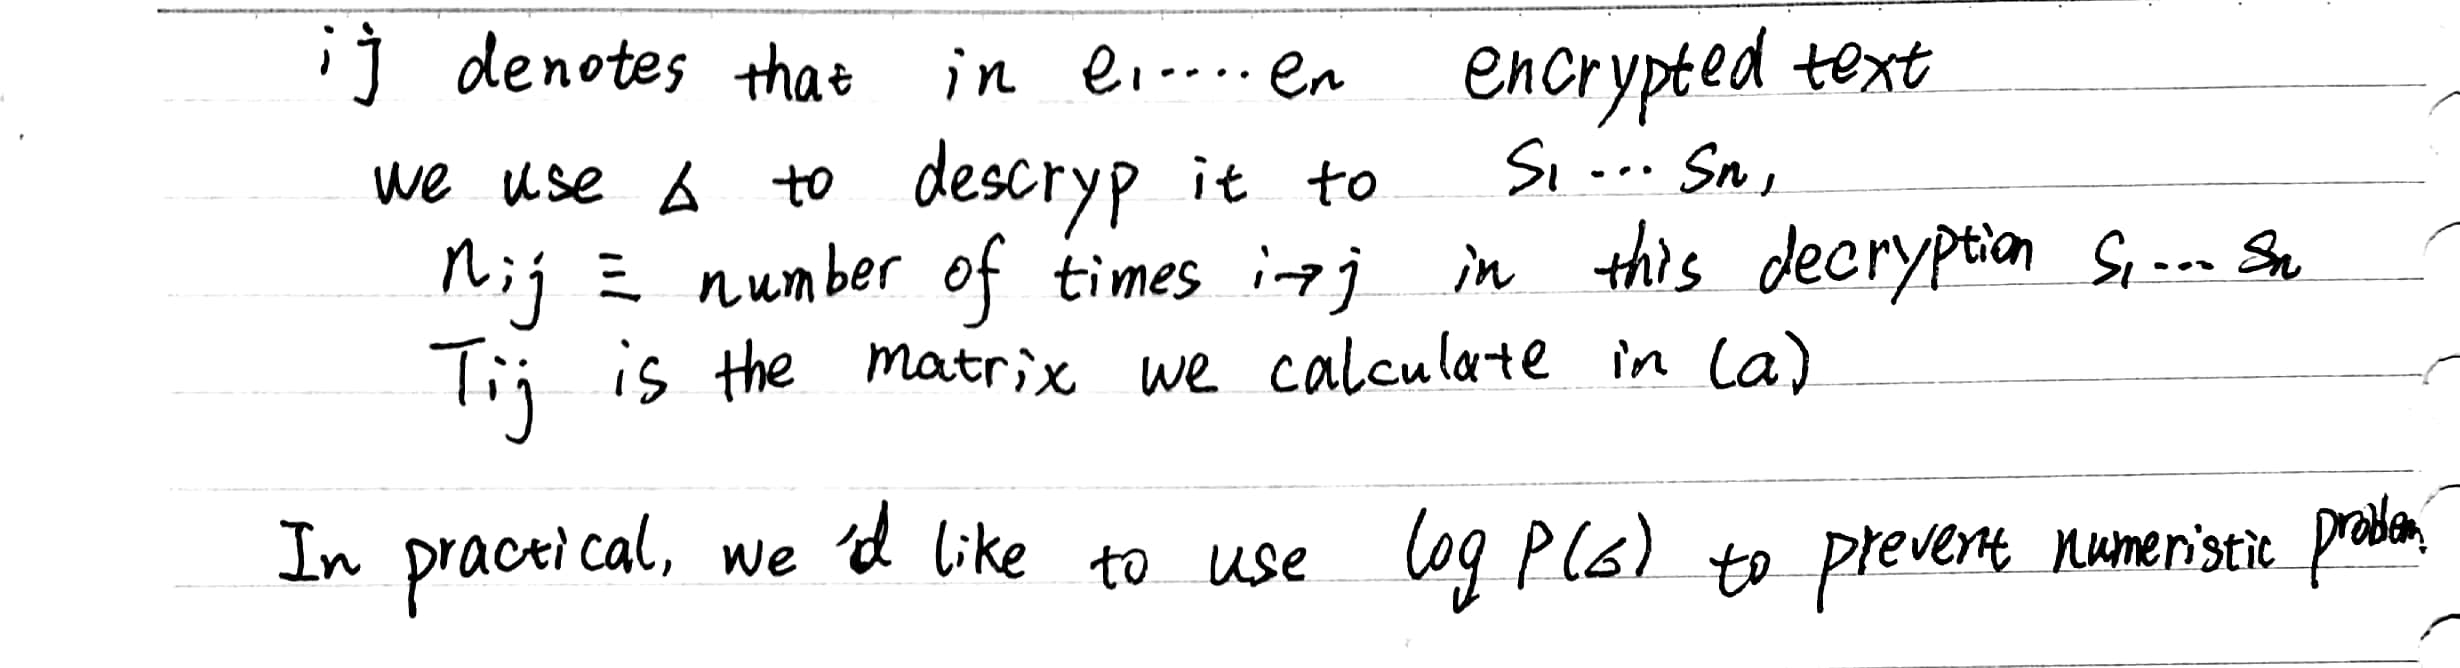 ij denotes that in e₁.....eₙ encrypted text
we use δ to descryp it to S₁...Sₙ,
nᵢⱼ ≡ number of times i→j in this decryption S₁...Sₙ
Tᵢⱼ is the matrix we calculate in (a)
In practical, we'd like to use log P(δ) to prevent numeristic problem.